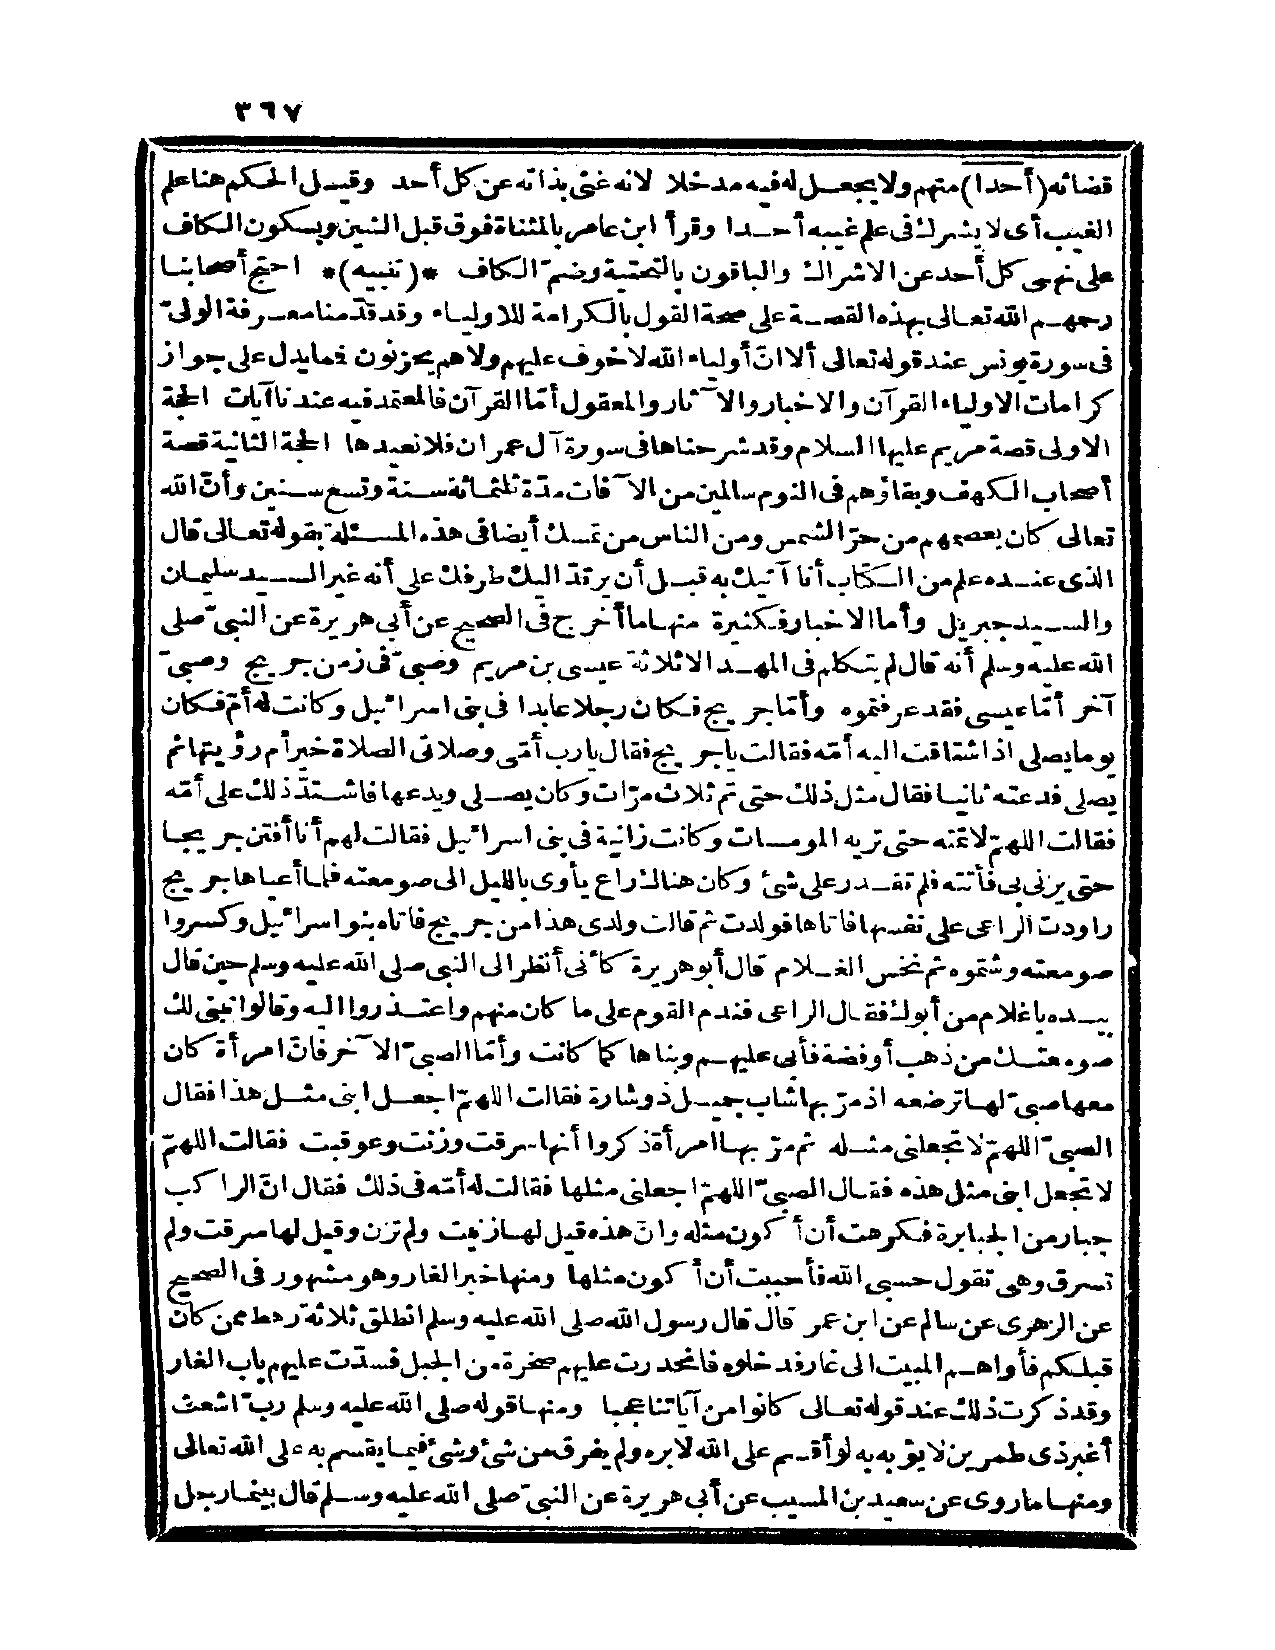 ٣٦٧
قضائه (أحدا) منهم ولا يجعل له فيه مدخلا لانه غنى بذاته عن كل أحد وقيل الحكم هنا علم
الغيب أى لا يشرك فى علم غيبه أحدا وقرأ ابن عامر بالمثناة فوق قبل الشين وبسكون الكاف
على نهى كل أحد عن الاشراك والباقون بالتحتية وضم الكاف *(تنبيه)* احتج أصحابنا
رحمهم الله تعالى بهذه القصة على صحة القول بالكرامة للاولياء وقد قدّمنا معرفة الولىّ
فى سورة يونس عند قوله تعالى ألا انّ أولياء الله لا خوف عليهم ولا هم يحزنون فما يدل على جواز
كرامات الاولياء القرآن والاخبار والآثار والمعقول أمّا القرآن فالمعتمد فيه عندنا آيات الحجة
الاولى قصة مريم عليها السلام وقد شرحناها فى سورة آل عمران فلا نعيدها الحجة الثانية قصة
أصحاب الكهف وبقاؤهم فى النوم سالمين من الآفات مدّة ثلثمائة سنة وتسع سنين وأنّ الله
تعالى كان يعصمهم من حرّ الشمس ومن الناس من تمسك أيضا فى هذه المسئلة بقوله تعالى قال
الذى عنده علم من الكتاب أنا آتيك به قبل أن يرتدّ اليك طرفك على أنه غير السيد سليمان
والسيد جبريل وأما الاخبار فكثيرة منها ما أخرج فى الصحيح عن أبى هريرة عن النبىّ صلى
الله عليه وسلم أنه قال لم يتكلم فى المهد الا ثلاثة عيسى بن مريم وصبىّ فى زمن جريج وصبىّ
آخر أمّا عيسى فقد عرفتموه وأمّا جريج فكان رجلا عابدا فى بنى اسرائيل وكانت له أمّ فكان
يوما يصلى اذ اشتاقت اليه أمّه فقالت يا جريج فقال يا رب أمّى وصلاتى الصلاة خير أم رؤيتها ثم
يصلى فدعته ثانيا فقال مثل ذلك حتى تم ثلاث مرّات وكان يصلى ويدعها فاشتدّ ذلك على أمّه
فقالت اللهمّ لا تمته حتى تريه المومسات وكانت زانية فى بنى اسرائيل فقالت لهم أنا أفتن جريجا
حتى يزنى بى فأتته فلم تقدر على شئ وكان هناك راع يأوى بالليل الى صومعته فلما أعياها جريج
راودت الراعى على نفسها فأتاها فولدت ثم قالت ولدى هذا من جريج فأتاه بنو اسرائيل وكسروا
صومعته وشتموه ثم نخس الغلام قال أبو هريرة كأنى أنظر الى النبى صلى الله عليه وسلم حين قال
بيده يا غلام من أبوك فقال الراعى فندم القوم على ما كان منهم واعتذروا اليه وقالوا نبنى لك
صومعتك من ذهب أو فضة فأبى عليهم وبناها كما كانت وأمّا الصبىّ الآخر فانّ امرأة كان
معها صبىّ لها ترضعه اذ مرّ بها شاب جميل ذو شارة فقالت اللهمّ اجعل ابنى مثل هذا فقال
الصبىّ اللهمّ لا تجعلنى مثله ثم مرّ بها امرأة ذكروا أنها سرقت وزنت وعوقبت فقالت اللهمّ
لا تجعل ابنى مثل هذه فقال الصبىّ اللهمّ اجعلنى مثلها فقالت له أمّه فى ذلك فقال انّ الراكب
جبار من الجبابرة فكرهت أن أكون مثله وانّ هذه قيل لها زنيت ولم تزن وقيل لها سرقت ولم
تسرق وهى تقول حسبى الله فأحببت أن أكون مثلها ومنها خبر الغار وهو مشهور فى الصحيح
عن الزهرى عن سالم عن ابن عمر قال قال رسول الله صلى الله عليه وسلم انطلق ثلاثة رهط ممن كان
قبلكم فأواهم المبيت الى غار فدخلوه فانحدرت عليهم صخرة من الجبل فسدّت عليهم باب الغار
وقد ذكرت ذلك عند قوله تعالى كانوا من آياتنا عجبا ومنها قوله صلى الله عليه وسلم ربّ أشعث
أغبر ذى طمرين لا يؤبه به لو أقسم على الله لابره ولم يفرق من شئ وشئ فيما يقسم به على الله تعالى
ومنها ما روى عن سعيد بن المسيب عن أبى هريرة عن النبىّ صلى الله عليه وسلم قال بينما رجل